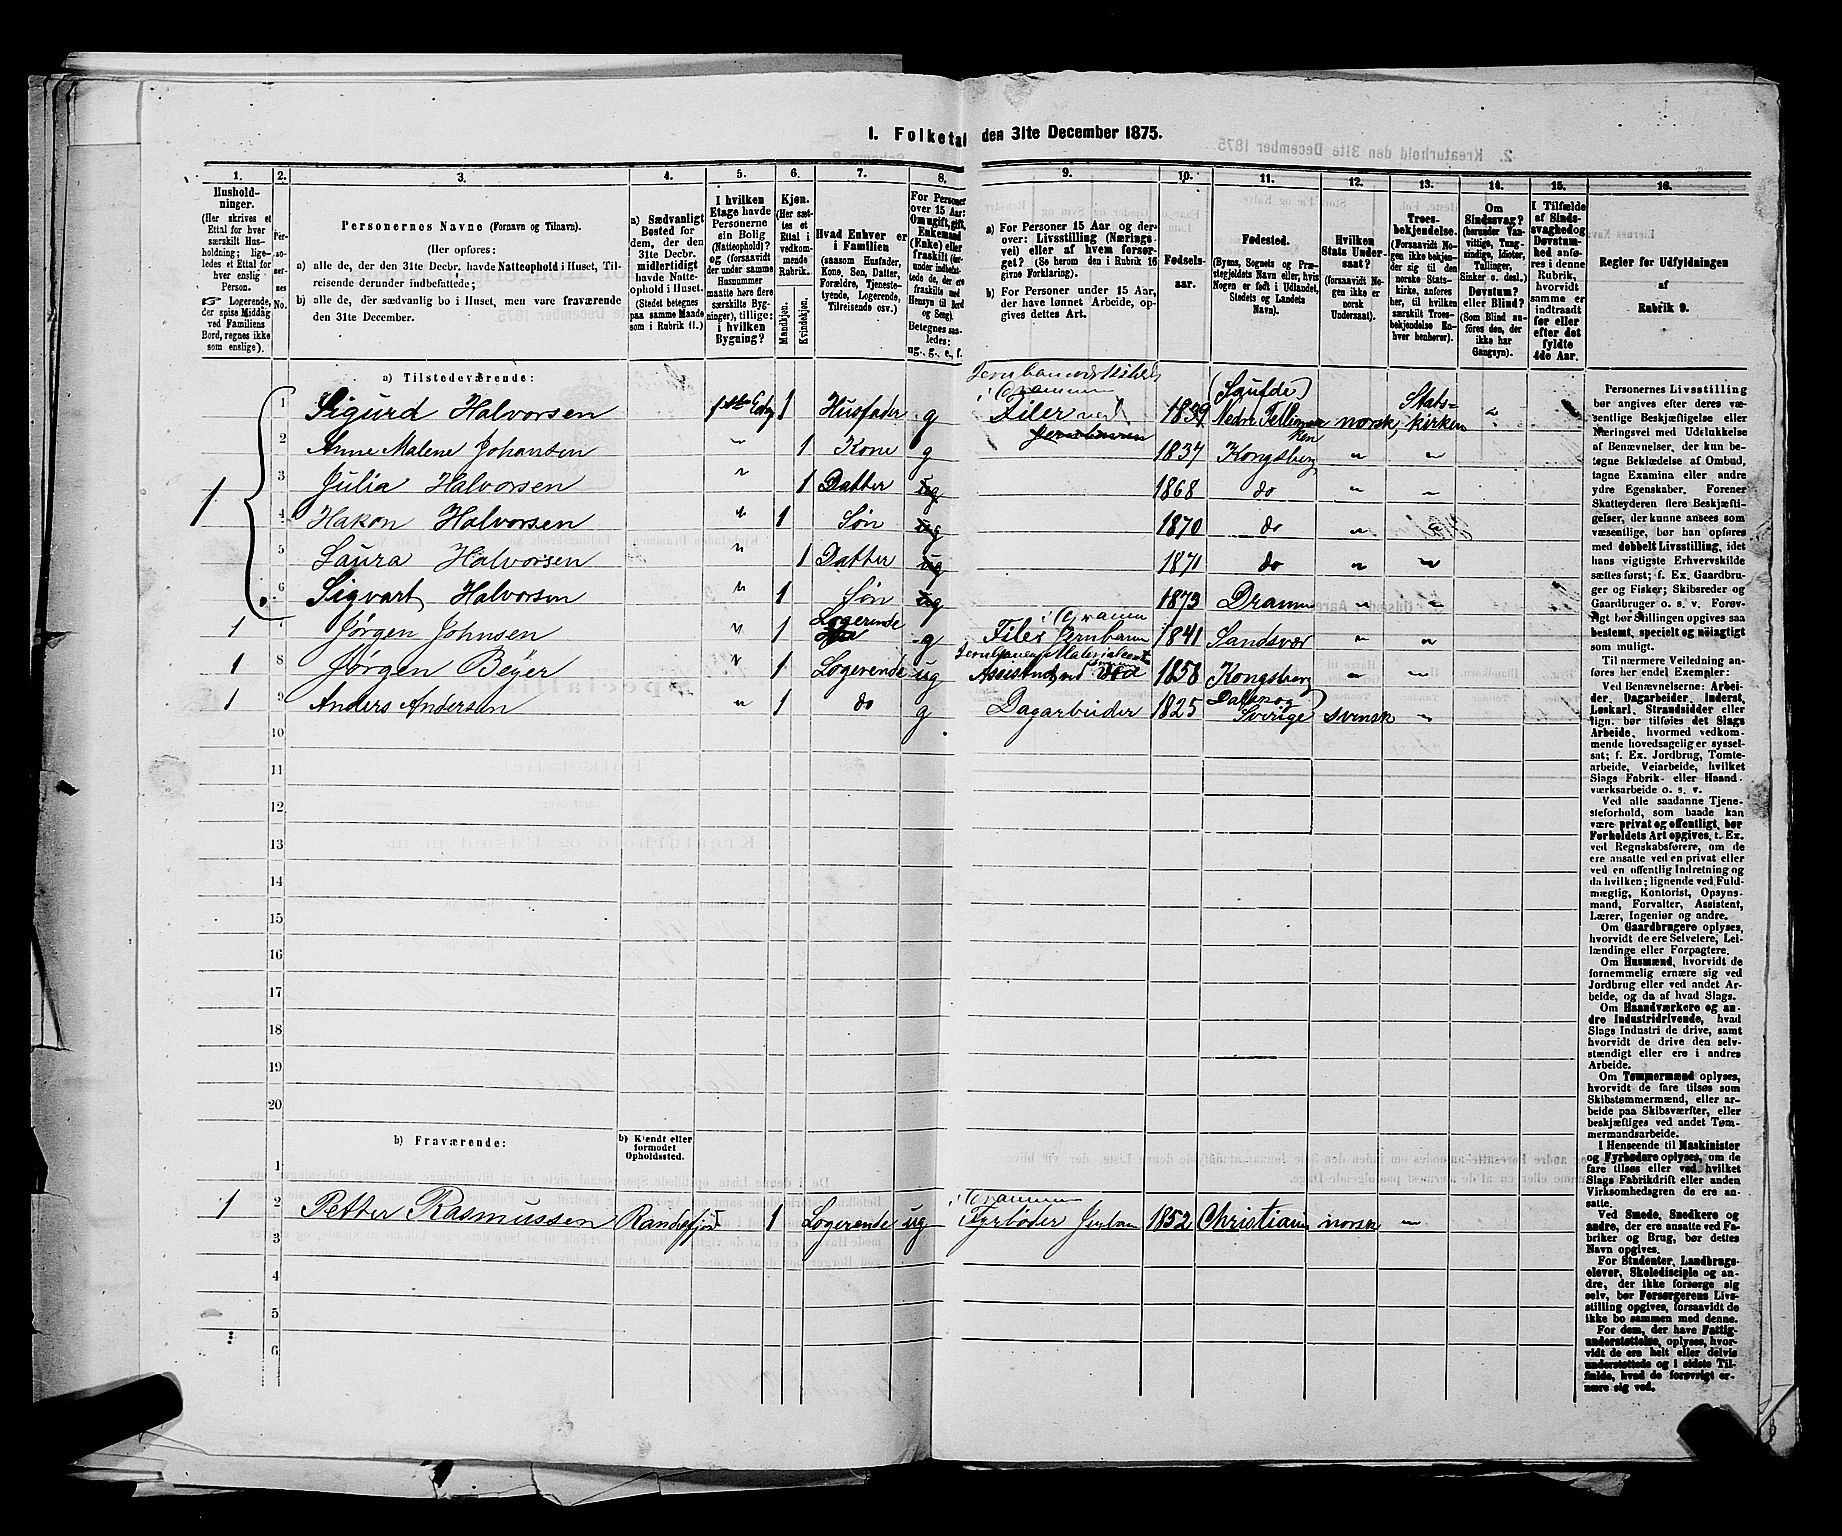 1. Folketal den 31te December 1875.
1. 2. 3. 4. 5. 6. 7. 8. 9. 10. 11. 12. 13. 14. 15. 16.
Hushold-
ninger.
(Her skrives et
Ettal for hver
særskilt Hus-
holdning; lige-
ledes et Ettal for
hver enslig
Person.
☞ Logerende,
der spise Middag
ved Familiens
Bord, regnes ikke
som enslige).
Per-
so-
ner-
nes
No.
Personernes Navne (Fornavn og Tilnavn).
(Her opføres:
a) alle de, der den 31te Decbr. havde Natteophold i Huset, Til-
reisende derunder indbefattede;
b) alle de, der sædvanlig bo i Huset, men vare fraværende
den 31te December.
a) Sædvanligt
Bosted for
dem, der den
31te Decbr.
midlertidigt
havde Natte-
ophold i Huset.
(Stedet betegnes
paa samme Maade
som i Rubrik 11.)
I hvilken
Etage havde
Personerne
sin Bolig
(Natteophold)?
og (forsaavidt
der under samme
Husnummer
maatte høre flere
særskilte Byg-
ninger), tillige:
i hvilken
Bygning?
Kjøn.
(Her sæt-
tes et
Ettal i
vedkom-
mende
Rubrik.
Mandkjøn.
Kvindekjøn.
Hvad Enhver er
i Familien
(saasom Husfader,
Kone, Søn, Datter,
Forældre, Tjeneste-
tyende, Logerende,
Tilreisende osv.)
For Personer
over 15 Aar:
Om ugift, gift,
Enkemand
(Enke) eller
fraskilt (her-
under indbefat-
tede de, der ere
fraskilte med
Hensyn til Bord
og Seng).
Betegnes saa-
ledes:
ug., g., e., f.
a) For Personer 15 Aar og der-
over: Livsstilling (Nærings-
vei) eller af hvem forsør-
get? (Se herom den i Rubrik 16
givne Forklaring).
b) For Personer under 15 Aar,
der have lønnet Arbeide, op-
gives dettes Art.
Fødsels-
aar.
Fødested.
(Byens, Sognets og Præ-
stegjeldets Navn eller, hvis
Nogen er født i Udlandet,
Stedets og Landets
Navn).
Hvilken
Stats Under-
saat?
(forsaavidt No-
gen ikke er
norsk
Undersaat).
Troes-
bekjendelse.
(Forsaavidt No-
gen ikke bekjen-
der sig til den
norske Stats-
kirke, anføres
her, til hvilken
særskilt Troes-
bekjendelse En-
hver henhører).
Om
Sindssvag?
(herunder Van-
vittige, Tung-
sindige, Idioter,
Tullinger,
Sinker o. desl.)
Døvstum?
eller Blind?
(Som Blind an-
føres den, der
ikke har
Gangsyn).
I Tilfælde
af Sinds-
svaghed og
Døvstum-
hed anfø-
res i denne
Rubrik,
hvorvidt
samme er
indtraadt
før eller
efter det
fyldte
4de Aar.
Regler for Udfyldningen
af
Rubrik 9.
a) Tilstedeværende:
1 1 Sigurd Halvorsen 1ste Etag 1 Husfader g Filer ved i Drammen 1839 (Saufde) Nedre norsk Stats-kirken
2 Anne Malene Johansen 1 Kone g 1837 Kongsberg
3 Julia Halvorsen 1 Datter ug 1868 do
4 Hakon Halvorsen 1 Søn ug 1870 do
5 Laura Halvorsen 1 Datter ug 1871 do
6 Sigvart Halvorsen 1 Søn ug 1873 Dramm
1 7 Jørgen Johnsen 1 Logerende g Filer Jernbann i Dramm 1841 Sandsvær
1 8 Jørgen Beyer 1 Logerende ug 1858 Kongsberg
1 9 Anders Andersen 1 do g Dagarbeider 1825 Sverige svensk
10
11
12
13
14
15
16
17
18
19
20
b) Fraværende:
b) Kjendt eller
formodet
Opholdssted.
1
1 2 Petter Rasmussen Randsfjord 1 Logerende ug i Drammen Fyrbøder Jernban 1852 Christiania norsk
3
4
5
6
Personernes Livsstilling
bør angives efter deres væ-
sentlige Beskjæftigelse eller
Næringsvei med Udelukkelse
af Benævnelser, der kun be-
tegne Beklædelse af Ombud,
tagne Examina eller andre
ydre Egenskaber. Forener
Skatteyderen flere Beskjæfti-
gelser, der kunne ansees som
væsentlige, bør han opføres
med dobbelt Livsstilling, idet
hans vigtigste Erhvervskilde
sættes først; f. Ex. Gaardbru-
ger og Fisker; Skibsreder og
Gaardbruger o. s. v. Forøv-
rigt bør Stillingen opgives saa
bestemt, specielt og nøiagtigt
som muligt.
Til nærmere Veiledning an-
føres her endel Exempler:
Ved Benævnelserne: Arbei-
der, Dagarbeider, Inderst,
Løskarl, Strandsidder eller
lign. bør tilføies det Slags
Arbeide, hvormed vedkom-
mende hovedsagelig er syssel-
sat; f. Ex. Jordbrug, Tomte-
arbeide, Veiarbeide, hvilket
Slags Fabrik- eller Haand-
værksarbeide o. s. v.
Ved alle saadanne Tjene-
steforhold, som baade kan
være privat og offentligt, bør
Forholdets Art opgives, t. Ex.
ved Regnskabsførere, om de
ere ansatte ved en privat eller
ved en offentlig Indretning og
da hvilken; lignende ved Fuld-
mægtig, Kontorist, Opsyns-
mand, Forvalter, Assistent,
Lærer, Ingeniør og andre.
Om Gaardbrugere oplyses,
hvorvidt de ere Selveiere, Lei-
lændinge eller Forpagtere.
Om Husmænd, hvorvidt de
fornemmelig ernære sig ved
Jordbrug eller ved andet Ar-
beide, og da af hvad Slags.
Om Haandværkere og an-
dre Industridrivende, hvad
Slags Industri de drive, samt
hvorvidt de drive den selv-
stændigt eller ere i andres
Arbeide.
Om Tømmermænd oplyses,
hvorvidt de fare tilsøs som
Skibstømmermænd, eller ar-
beide paa Skibsværfter, eller
beskjæftiges ved andet Tøm-
mermandsarbeide.
I Henseende til Maskinister
og Fyrbødere oplyses, om de
fare tilsøs eller ved hvilket
Slags Fabrikdrift eller anden
Virksomhedsgren de ere an-
satte.
Ved Smede, Snedkere og
andre, der ere ansatte ved Fa-
briker og Brug, bør dettes
Navn opgives.
For Studenter, Landbrugs-
elever, Skoledisciple og an-
dre, der ikke forsørge sig
selv, bør Forsørgerens Livs-
stilling opgives, forsaavidt de
ikke bo sammen med denne.
For dem, der have Fattig-
understøttelse, oplyses, hvor-
vidt de ere helt eller delvis
understøttede og i sidste Til-
fælde, hvad de forøvrigt er-
nære sig ved.